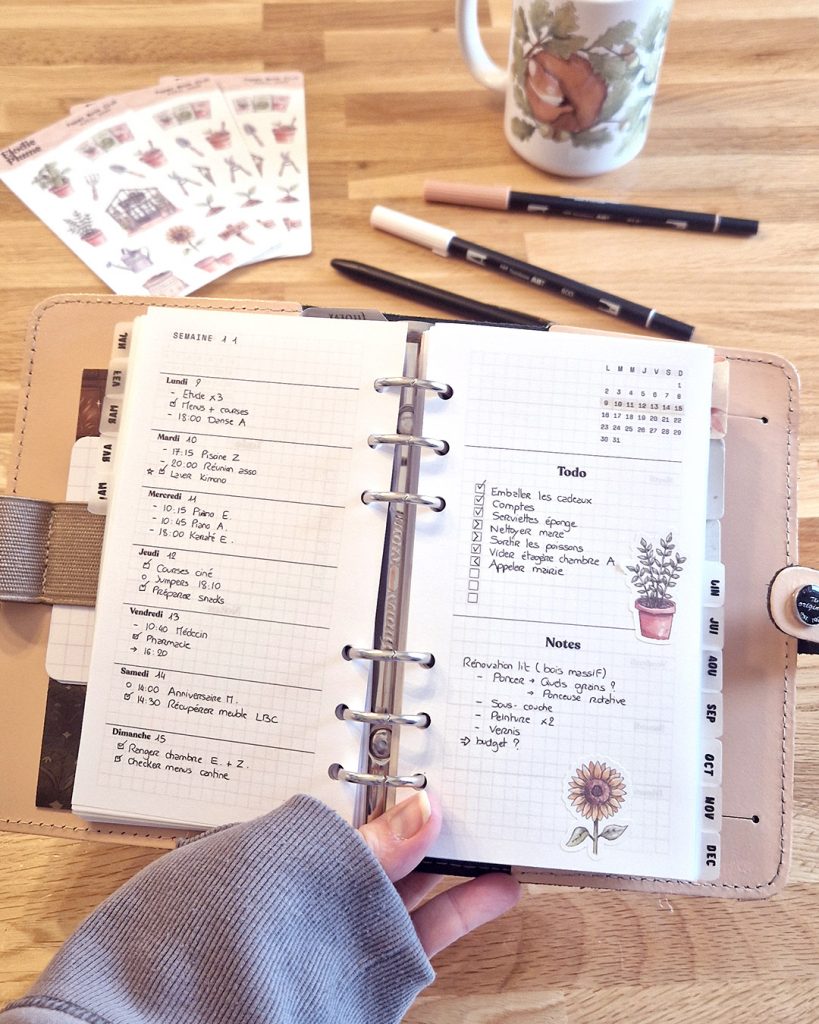 Elodie
Plume
SEMAINE 11
Lundi 9
- Etude x3
Menus + courses
- 18:00 Danse A
Mardi 10
- 17:15 Piscine Z
- 20:00 Réunion asso
Laver Kimono
Mercredi 11
- 10:15 Piano E.
- 10:45 Piano A.
- 18:00 Karaté E.
Jeudi 12
Courses ciné
Jumpers 18:10
Préparer snacks
Vendredi 13
- 10:40 Médecin
Pharmacie
→ 16:20
Samedi 14
14:00 Anniversaire M.
14:30 Récupérer meuble LBC
Dimanche 15
Ranger chambre E. + Z.
Checker menus cantine
L M M J V S D
1
2 3 4 5 6 7 8
9 10 11 12 13 14 15
16 17 18 19 20 21 22
23 24 25 26 27 28 29
30 31
Todo
Emballer les cadeaux
Comptes
Serviettes éponge
Nettoyer mare
Sortir les poissons
Vider étagère chambre A
Appeler mairie
Notes
Rénovation lit (bois massif)
- Poncer → Quels grains ?
→ Ponceuse rotative
- Sous-couche
- Peinture x2
- Vernis
⇒ budget ?
JAN
FEV
MAR
AVR
MAI
JUIN
JUI
AOU
SEP
OCT
NOV
DEC